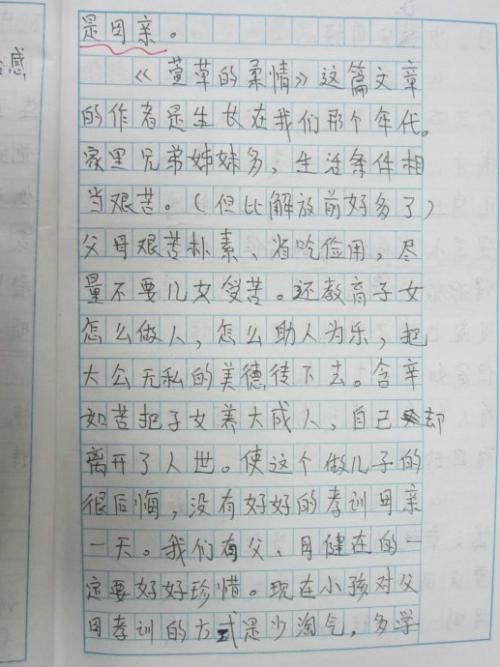 是母亲。
《萱草的柔情》这篇文章
的作者是生长在我们那个年代。
家里兄弟姊妹多，生活条件相
当艰苦。（但比解放前好多了）
父母艰苦朴素、省吃俭用，尽
量不要儿女受苦。还教育子女
怎么做人，怎么助人为乐，把
大公无私的美德传下去。含辛
如苦把子女养大成人，自己却
离开了人世。使这个做儿子的
很后悔，没有好好的孝训母亲
一天。我们有父、母健在的一
定要好好珍惜。现在小孩对父
母孝训的方式是少淘气，多学
感